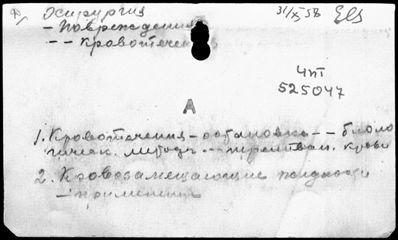 Хирургия 31/X 58
- Повреждения
- - Кровотечения
ЧПТ
525047
А
1. Кровотечения - остановка - - биоло
гическ. методъ - - переливан. крови
2. Кровозамещающие жидкости
- применение